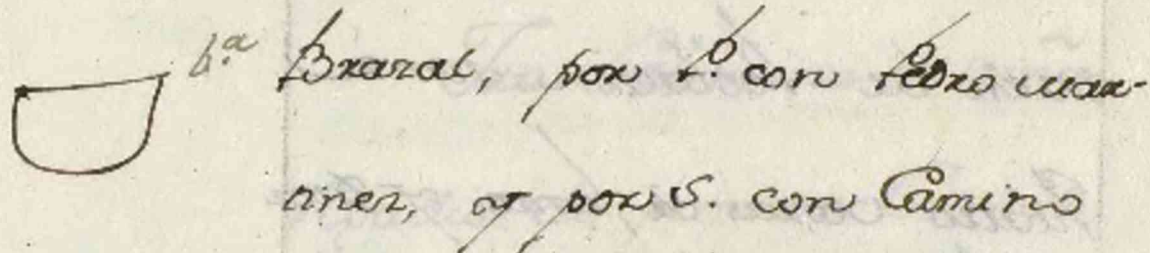 Brazal, por P.º con Pedro Mar-
tinez, y por S. con Camino